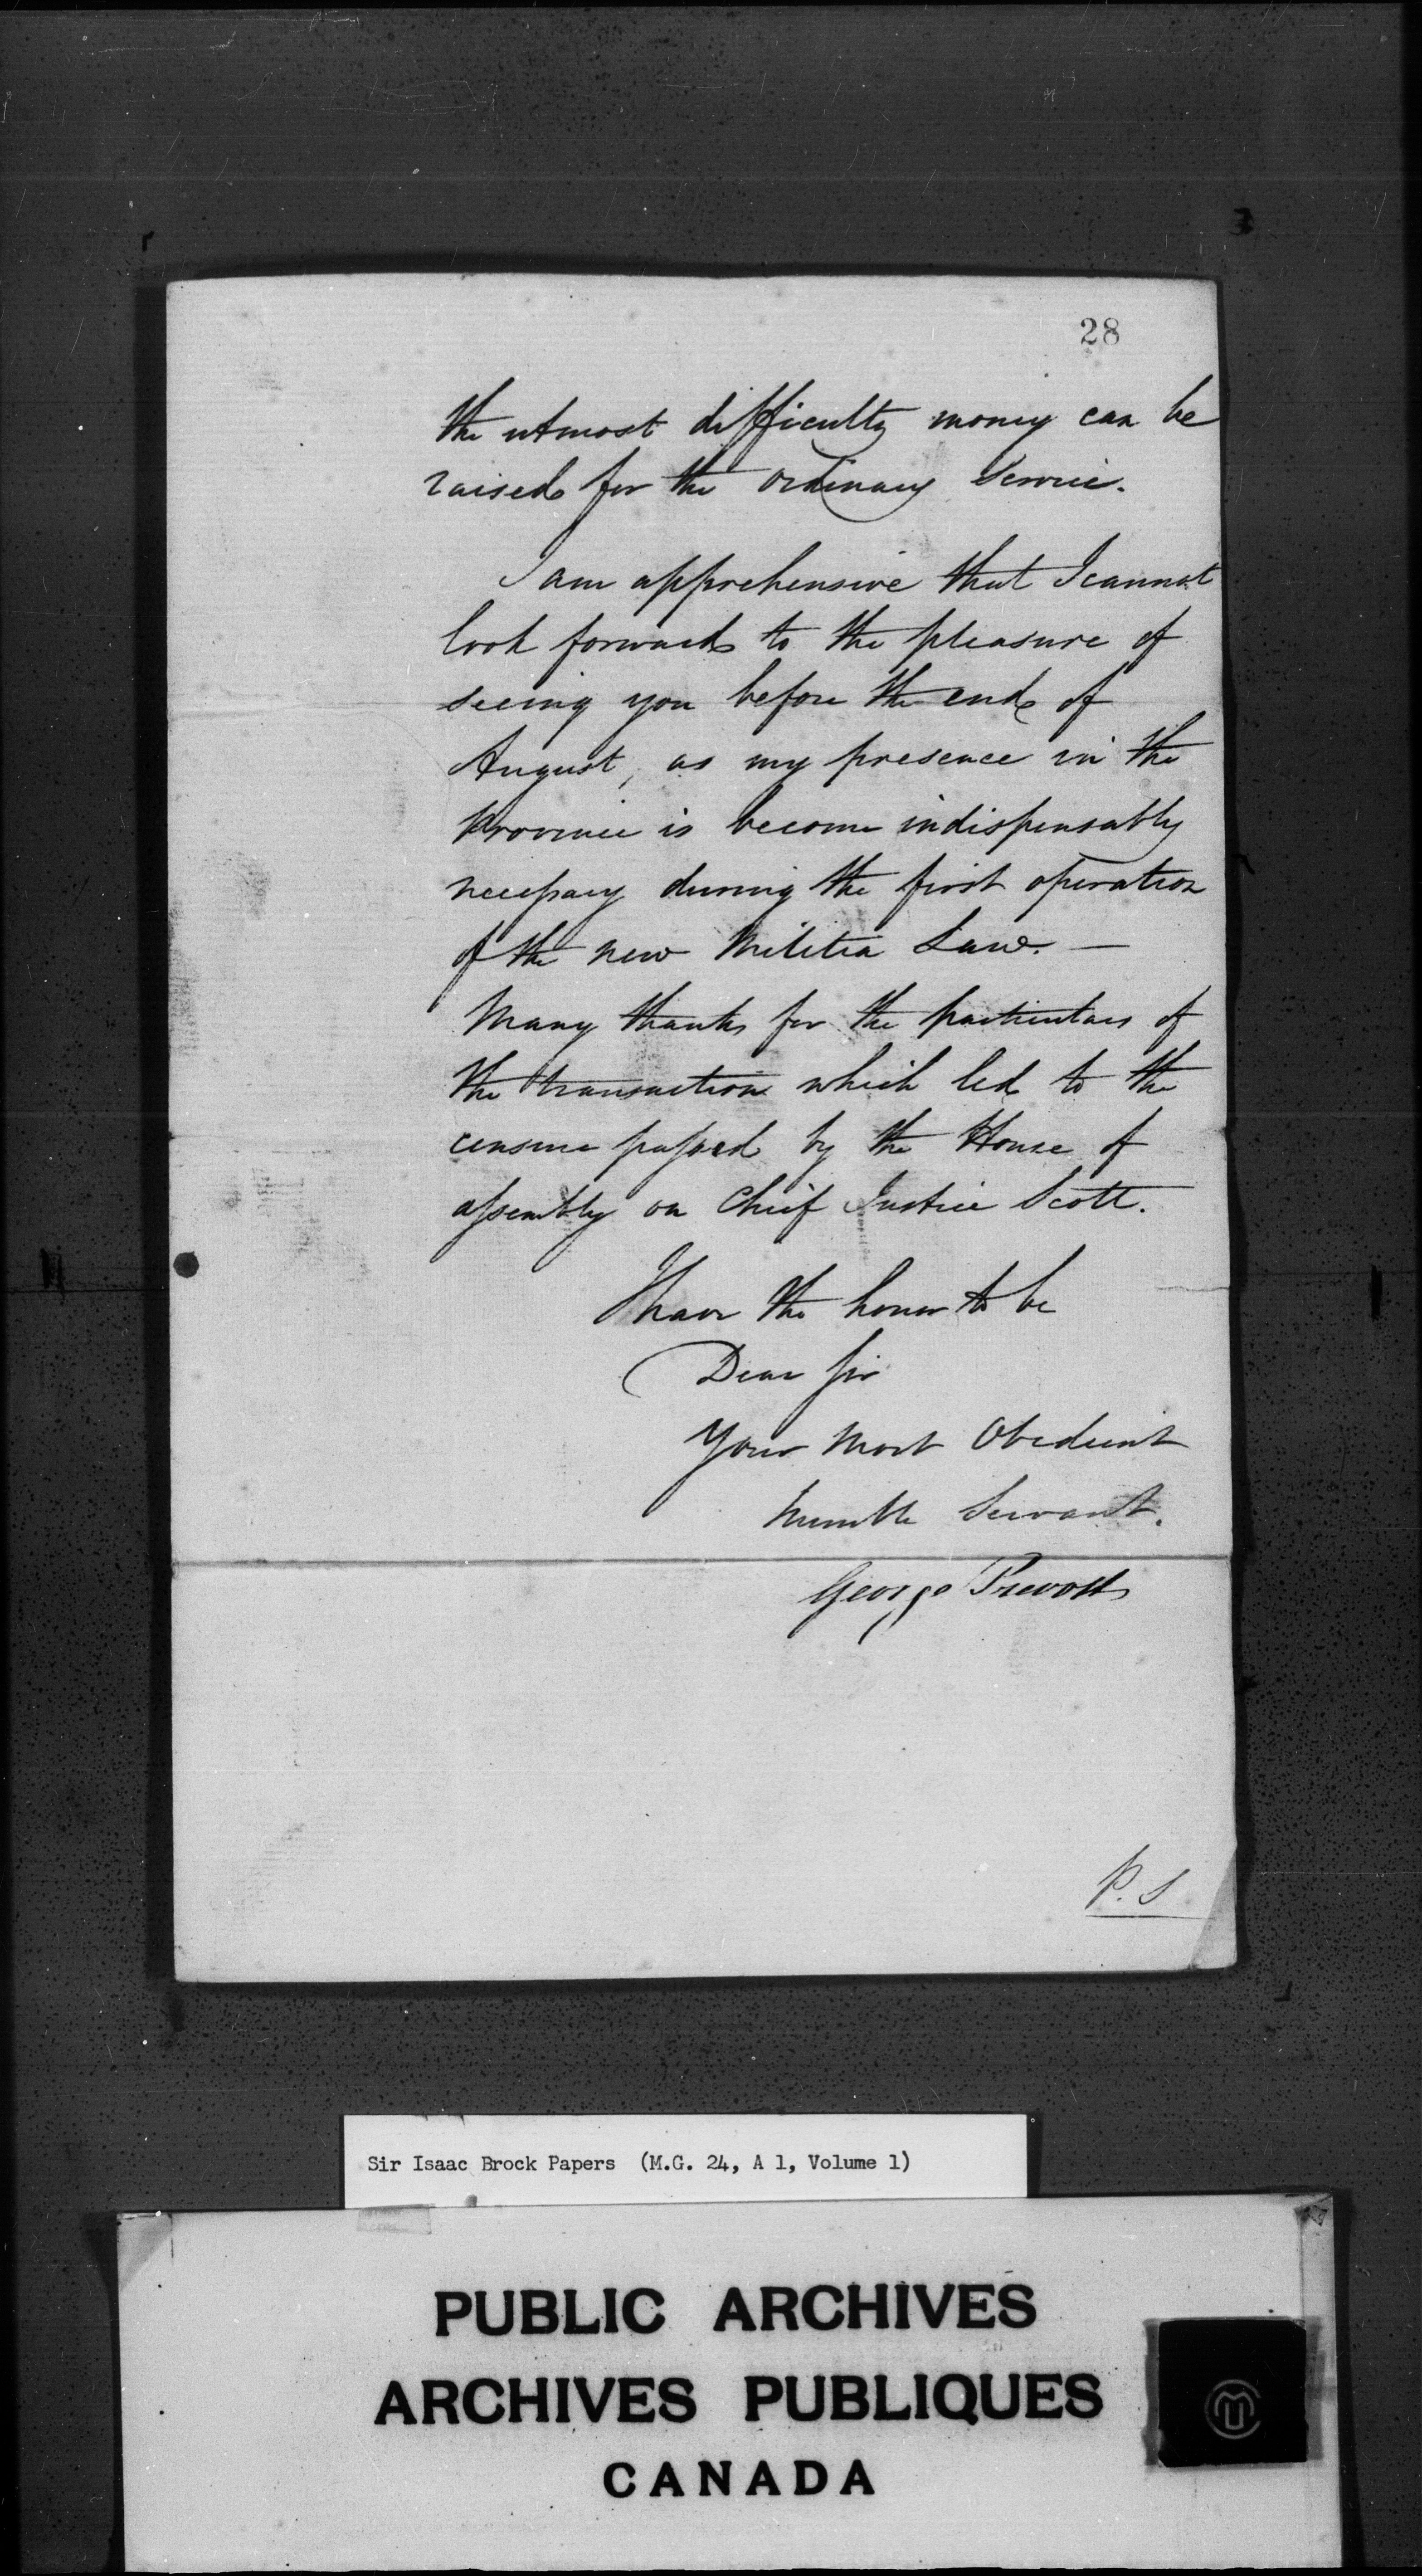 28
the utmost difficulty money can be
raised for the ordinary Service.
I am apprehensive that I cannot
look forward to the pleasure of
seeing you before the end of
August, as my presence in the
Province is become indispensably
necessary during the first operation
of the new Militia Law. —
Many thanks for the particulars of
the transaction which led to the
censure passed by the House of
assembly on Chief Justice Scott.
I have the honor to be
Dear Sir
Your Most Obedient
humble Servant.
George Prevost
P. S
Sir Isaac Brock Papers (M.G. 24, A 1, Volume 1)
PUBLIC ARCHIVES
ARCHIVES PUBLIQUES
CANADA